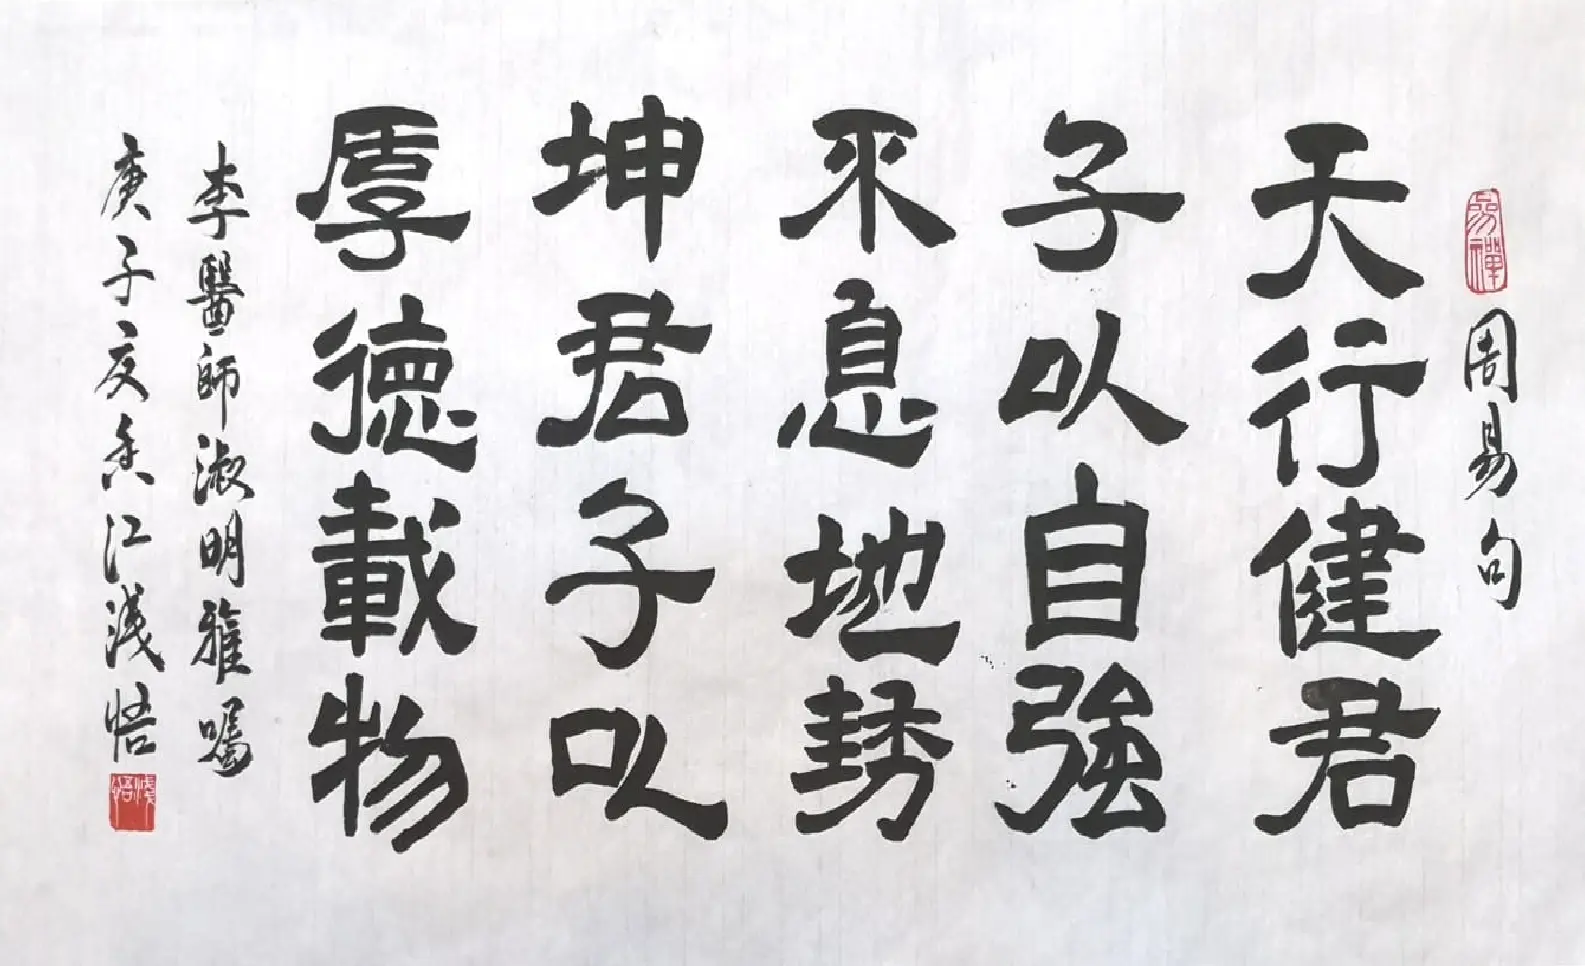 易禪
周易句
天行健君
子以自強
不息地勢
坤君子以
厚德載物
李醫師淑明雅囑
庚子夏香江浅悟
浅悟